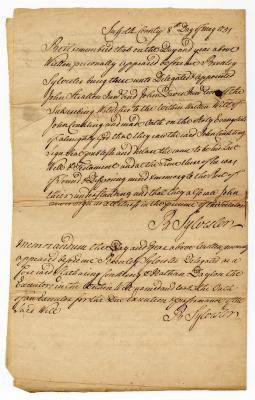 Suffolk County 8th Day of May 1751
Be it remembered that on the Day and year above
Written personally Appeared before me Brinley
Sylvester being there unto Delegated & appointed
John Stratton and John Davis two of the
Subscribing Witnesses to the Within written Will of
John Conkling and made Oath on the Holy Evangelists
of almighty God that they saw the said John Conkling
sign and declare the same to be his Last
Will & Testament and at the time thereof he was
of sound & Disposing mind & memory to the best of
their understanding and that they also saw John
sign as a Witness in the presence of the Testator
Br Sylvester
Memorandum the Day and year above written
appeared before me Brinley Sylvester Delegated as a
foresaid Catharine Conkling & Nathan Dayton the
Executors in the Within Will named and took the Oath
of an Executor for the Due Execution & performance of the
Said Will
Br Sylvester